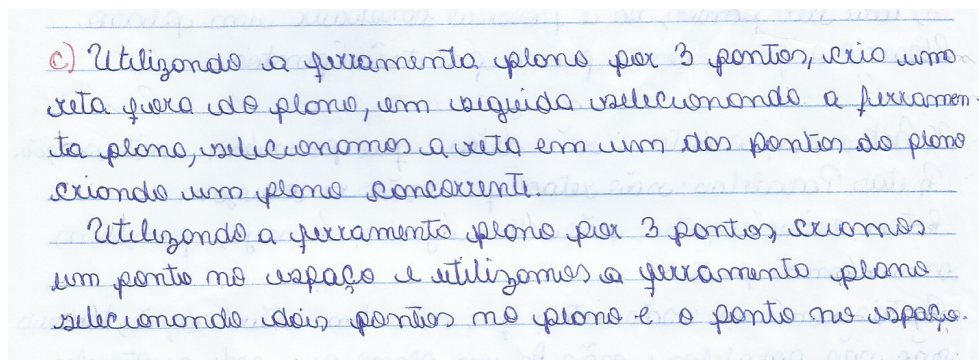 c) Utilizando a ferramenta plano por 3 pontos, crio uma
reta fora do plano, em seguida selecionando a ferramen-
ta plano, selecionamos a reta em um dos pontos do plano
criando um plano concorrente
Utilizando a ferramenta plano por 3 pontos, criamos
um ponto no espaço e utilizamos a ferramenta plano
selecionando dois pontos no plano e o ponto no espaço.